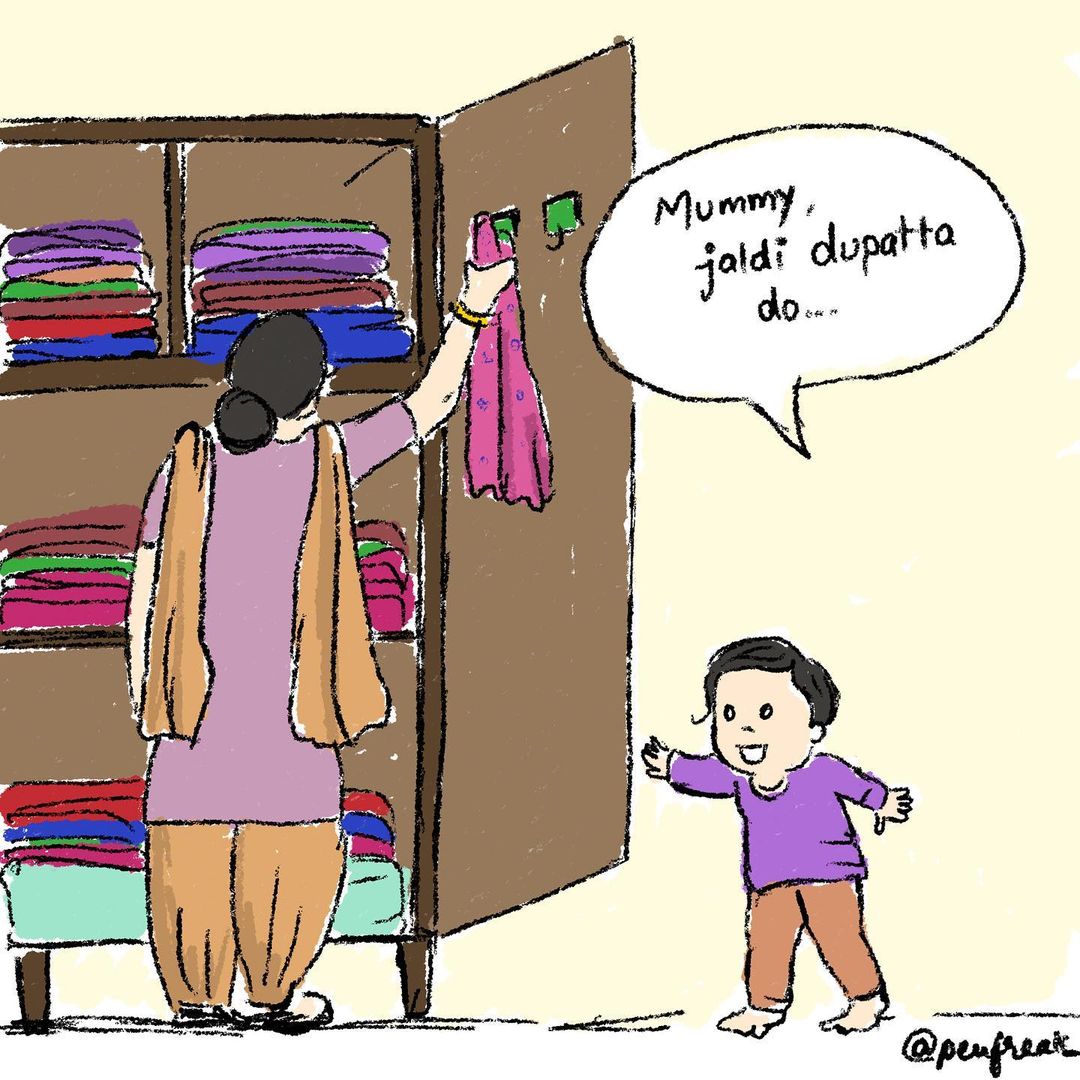 Mummy,
jaldi dupatta
do....
@penfreak